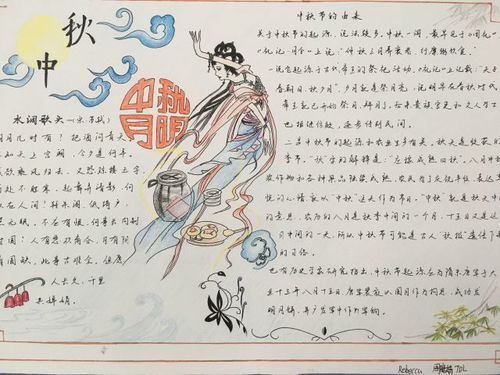 中秋
中秋
明月
水调歌头 (宋 苏轼)
月几时有？把酒问青天。
知天上宫阙，今夕是何年。
欲乘风归去，又恐琼楼玉宇，
处不胜寒。起舞弄清影，何
在人间！转朱阁，低绮户，
无眠。不应有恨，何事长向别
时圆？人有悲欢离合，月有阴
圆缺，此事古难全。但愿
人长久，千里
共婵娟。
中秋节的由来
关于中秋节的起源，说法较多。中秋一词，最早见于《周礼》
《礼记·月令》上说：“仲秋之月养衰老，行糜粥饮食。”
一说它起源于古代帝王的祭祀活动。《礼记》上记载：“天子
春朝日，秋夕月”，夕月就是祭月亮，说明早在春秋时代，
帝王就已开始祭月、拜月了。后来贵族官吏和文人学士
也相继仿效，逐步传到民间。
二是中秋节的起源和农业生产有关。秋天是收获的
季节。“秋”字的解释是：“庄稼成熟曰秋”。八月中秋，
农作物和各种果品陆续成熟，农民为了庆祝丰收，表达喜
悦的心情，就以“中秋”这天作为节日。“中秋”就是秋天中间
的意思，农历的八月是秋季中间的一个月，十五日又是这个
月中间的一天，所以中秋节可能是古人“秋报”遗传下来
的习俗。
也有历史学家研究指出，中秋节起源应为隋末唐军于大
业十三年八月十五日，唐军裴寂以圆月作为构思，成功发
明月饼，并广发军中作为军饷
Rebecca
7DL